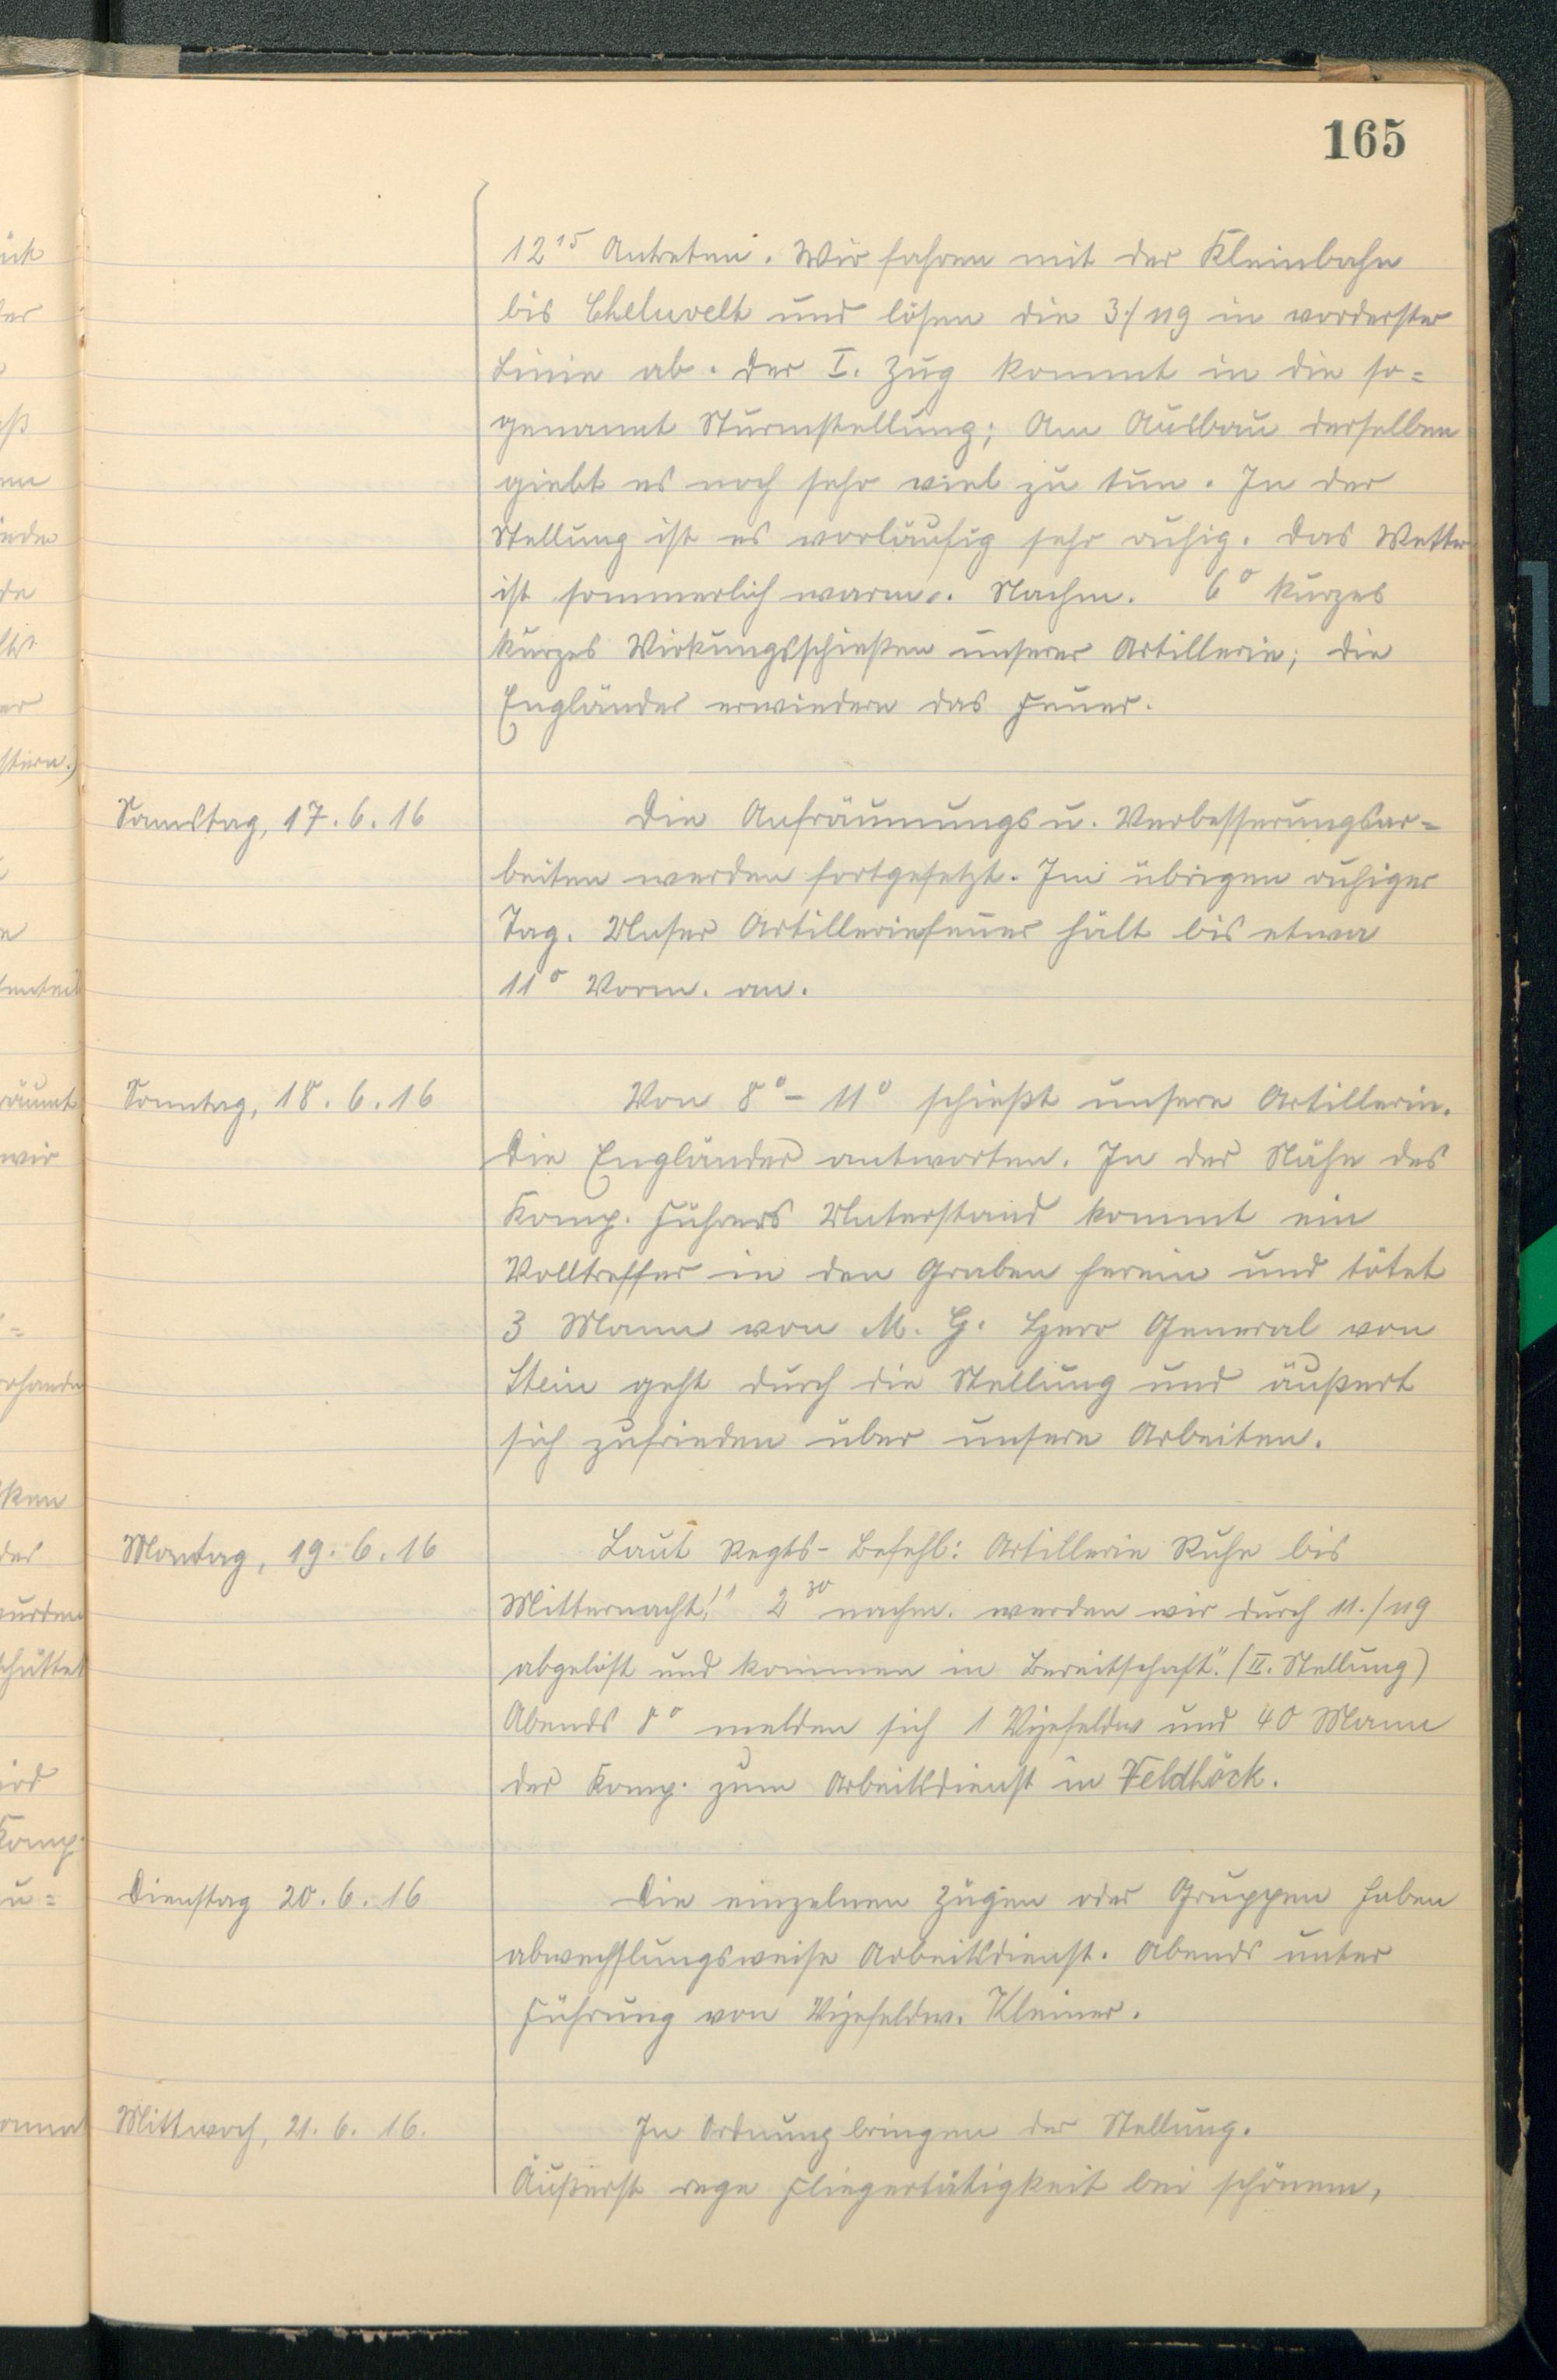 165
12¹⁵ Antreten. Wir fahren mit der Kleinbahn
bis Cheluvelt und lösen die 3./119 in vorderster
Linie ab. Der I. Zug kommt in die so=
genannt Sturmstellung; Am Ausbau derselben
giebt es noch sehr viel zu tun. In der
Stellung ist es vorläufig sehr ruhig. Das Wetter
ist sommerlich warm. Nachm. 6⁰ kurzes
kurzes Wirkungsschießen unserer Artillerie; die
Engländer erwiedern das Feuer.
Samstag, 17.6.16 Die Aufräumungs u. Verbesserungsar=
beiten werden fortgesetzt. Im übrigen ruhiger
Tag. Unser Artilleriefeuer hält bis etwa
11⁰ Vorm. an.
Sonntag, 18.6.16 Von 8⁰ - 11⁰ schießt unsere Artillerie.
Die Engländer antworten. In der Nähe des
Komp. Führers Unterstand kommt ein
Volltreffer in den Graben herein und tötet
3 Mann von M. G. Herr General von
Stein geht durch die Stellung und äußert
sich zufrieden über unsere Arbeiten.
Montag, 19.6.16 Laut Regts- Befehl: Artillerie Ruhe bis
Mitternacht!" 2³⁰ nachm. werden wir durch 11./119
abgelöst und kommen in Bereitschaft". (II. Stellung)
Abends 8⁰ melden sich 1 Vizefeldw und 40 Mann
der Komp. zum Arbeitsdienst in Veldhöck.
Dienstag 20.6.16 Die einzelnen Zügen oder Gruppen haben
abwechslungsweise Arbeitsdienst. Abends unter
Führung von Vizefeldw. Kleiner.
Mittwoch, 21.6.16. In Ordnung bringen der Stellung.
Äußerst rege Fliegertätigkeit bei schönem,